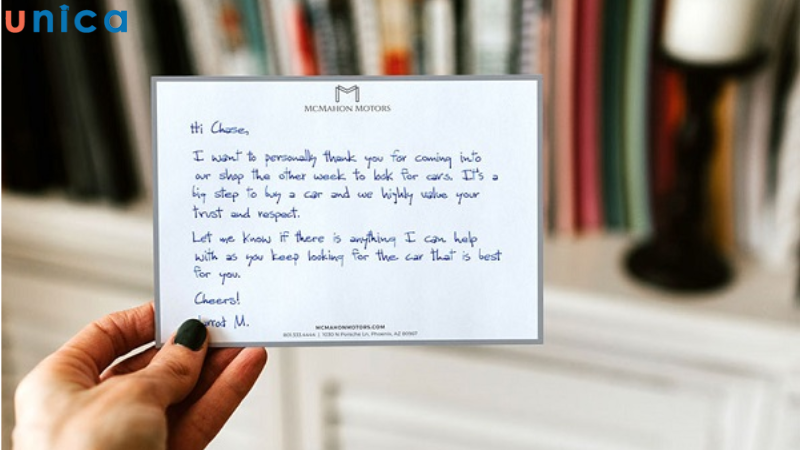 unica
MCMAHON MOTORS
Hi Chase,
I want to personally thank you for coming into
our shop the other week to look for cars. It's a
big step to buy a car and we highly value your
trust and respect.
Let me know if there is anything I can help
with as you keep looking for the car that is best
for you.
Cheers!
Jarrod M.
MCMAHONMOTORS.COM
801.333.4444 | 1030 N Porsche Ln, Phoenix, AZ